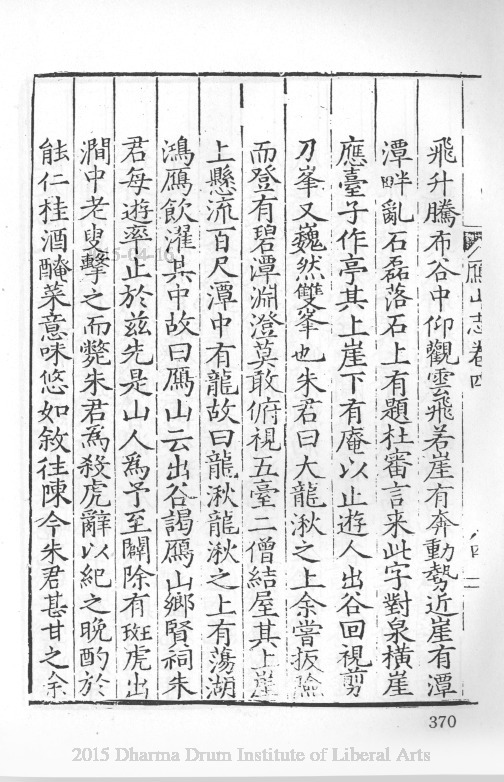 飛升騰布谷中仰觀雲飛若崖有奔動勢近崖有潭
潭畔亂石磊落石上有題杜審言来此字對泉橫崖
應臺子作亭其上崖下有庵以止遊人出谷回視剪
刀峯又巍然雙峯也朱君曰大龍湫之上余嘗扳險
而登有碧潭淵澄莫敢俯視五臺二僧結屋其上崖
上懸流百尺潭中有龍故曰龍湫龍湫之上有蕩湖
鴻鴈飲濯其中故曰鴈山云出谷謁鴈山鄉賢祠朱
君每遊率止於兹先是山人爲予至闢除有斑虎出
澗中老叟擊之而斃朱君爲殺虎辭以紀之晚酌於
能仁桂酒醃菜意味悠如敘往陳今朱君甚甘之余
鴈山志卷四
370
2015 Dharma Drum Institute of Liberal Arts